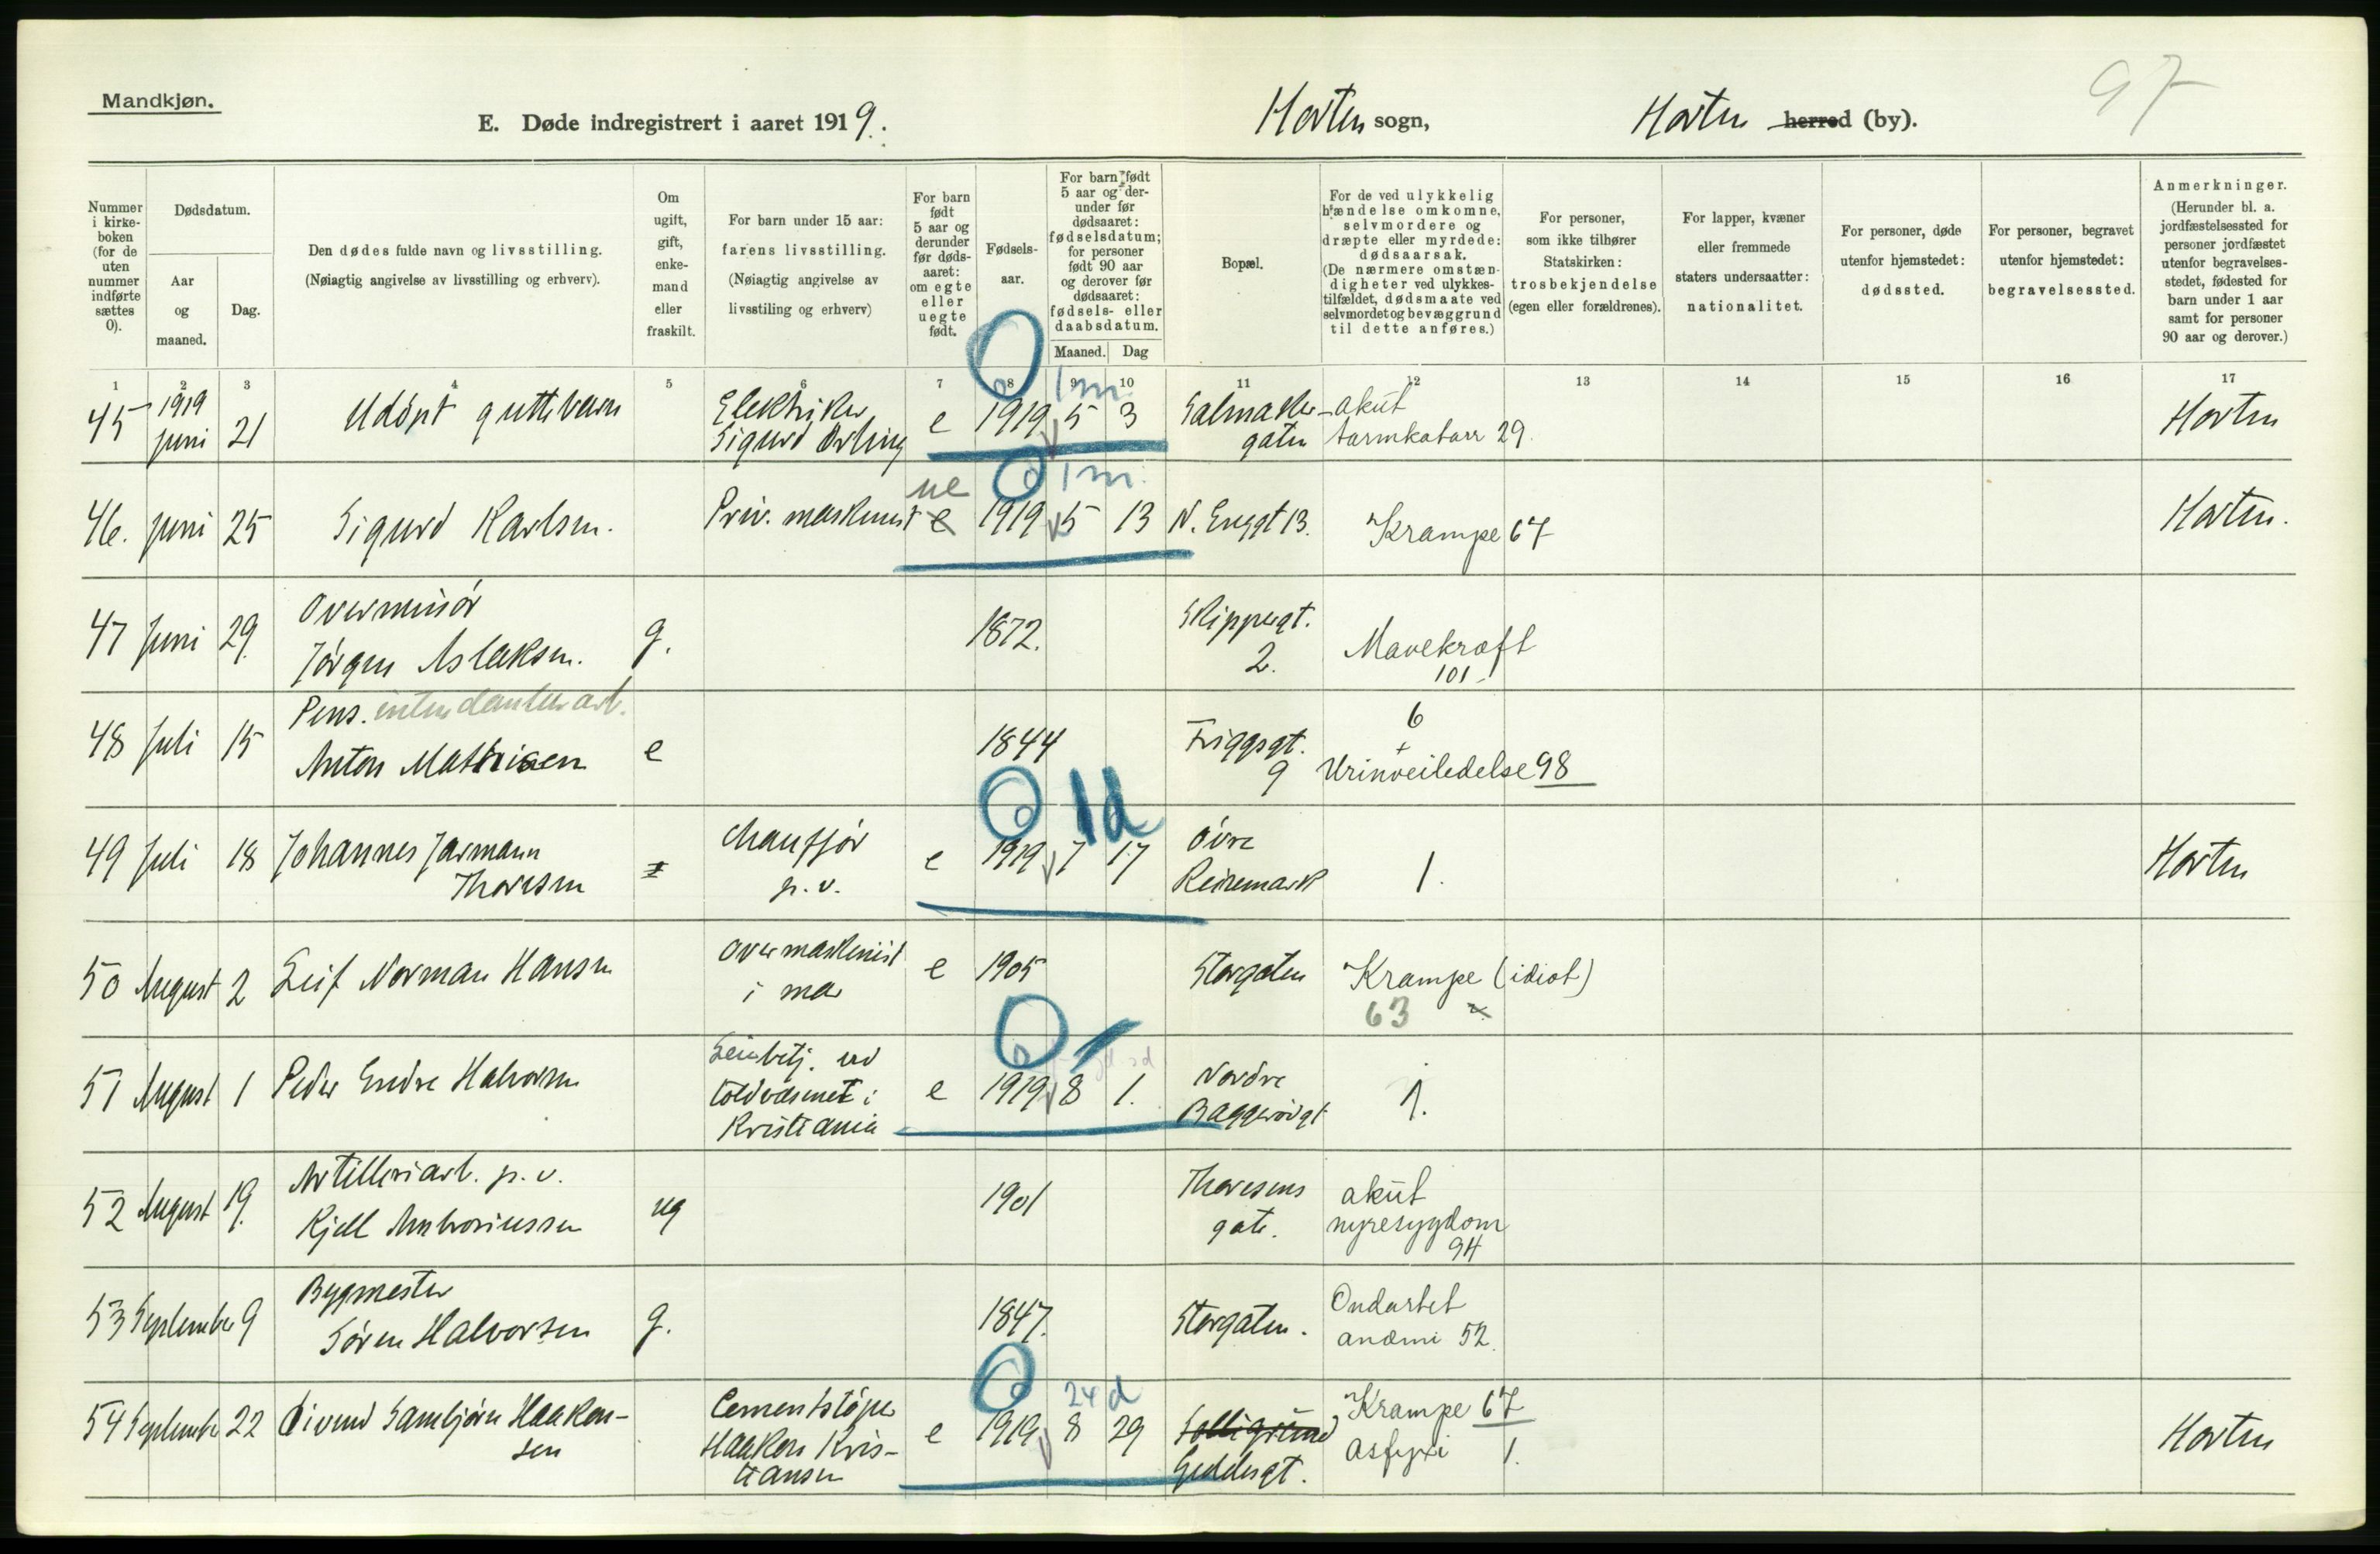 97
Mandkjøn.
E. Døde indregistrert i aaret 1919.
Horten sogn,
Horten herred (by).
Nummer i kirkeboken (for de uten nummer indførte sættes 0).
Dødsdatum.
Aar og maaned.
Dag.
Den dødes fulde navn og livsstilling.
(Nøiagtig angivelse av livsstilling og erhverv).
Om ugift, gift, enkemand eller fraskilt.
For barn under 15 aar:
farens livsstilling.
(Nøiagtig angivelse av livsstiling og erhverv)
For barn født 5 aar og derunder før dødsaaret: om egte eller uegte født.
Fødselsaar.
For barn født 5 aar og derunder før dødsaaret: fødselsdatum; for personer født 90 aar og derover før dødsaaret: fødsels- eller daabsdatum.
Maaned.
Dag
Bopæl.
For de ved ulykkelig hændelse omkomne, selvmordere og dræpte eller myrdede: dødsaarsak.
(De nærmere omstændigheter ved ulykkestilfældet, dødsmaate ved selvmordet og bevæggrund til dette anføres.)
For personer, som ikke tilhører Statskirken: trosbekjendelse (egen eller forældrenes).
For lapper, kvæner eller fremmede staters undersaatter: nationalitet.
For personer, døde utenfor hjemstedet: dødssted.
For personer, begravet utenfor hjemstedet: begravelsessted.
Anmerkninger.
(Herunder bl. a. jordfæstelsessted for personer jordfæstet utenfor begravelsesstedet, fødested for barn under 1 aar samt for personer 90 aar og derover.)
1 2 3 4 5 6 7 8 9 10 11 12 13 14 15 16 17
0 1 m.
45 1919 juni 21 Udöpt guttebarn Elektriker Sigurd Örling e 1919 5 3 Salmakergaten akut tarmkatarr 29. Horten
0 1 m.
46. juni 25 Sigurd Karlsen. Priv. maskinist ue e 1919 5 13 N. Enggt 13. Krampe 67 Horten.
47 Juni 29. Overminör Jörgen Aslaksen. g. 1872. Skippergt. 2. Mavekræft 101.
48 Juli 15 Pens. intendanturarb. Anton Mathisen e 1844 Friggsgt. 9 6 + Urinveiledelse 98
0 1d
49 Juli 18 Johannes Jarmann Thoresen Chaufför p. v. e 1919 7 17 Övre Keisemark 1. Horten
50 August 2 Leif Norman Hansen Overmaskinist i mar e 1905 Storgaten Krampe (idiot) 63
0
51 August 1 Peder Endre Halvorsen betj. ved toldvæsenet i Kristiania e 1919 8 1. Nordre Baggerödgt 1.
52 August 19. Artilleriarb. p. v. Kjell Ambrosiussen ug 1901 Thoresens gate. akut nyresygdom 94
53 September 9 Bygmester Sören Halvorsen g. 1847. Storgaten. Ondartet anæmi 52.
0 24 d
54 September 22 Öivind Sambjörn Haakensen Cementstöper Haaken Kristiansen e 1919 8 29 Solligrünnd Geddesgt. Krampe 67 Asfyxi 1. Horten